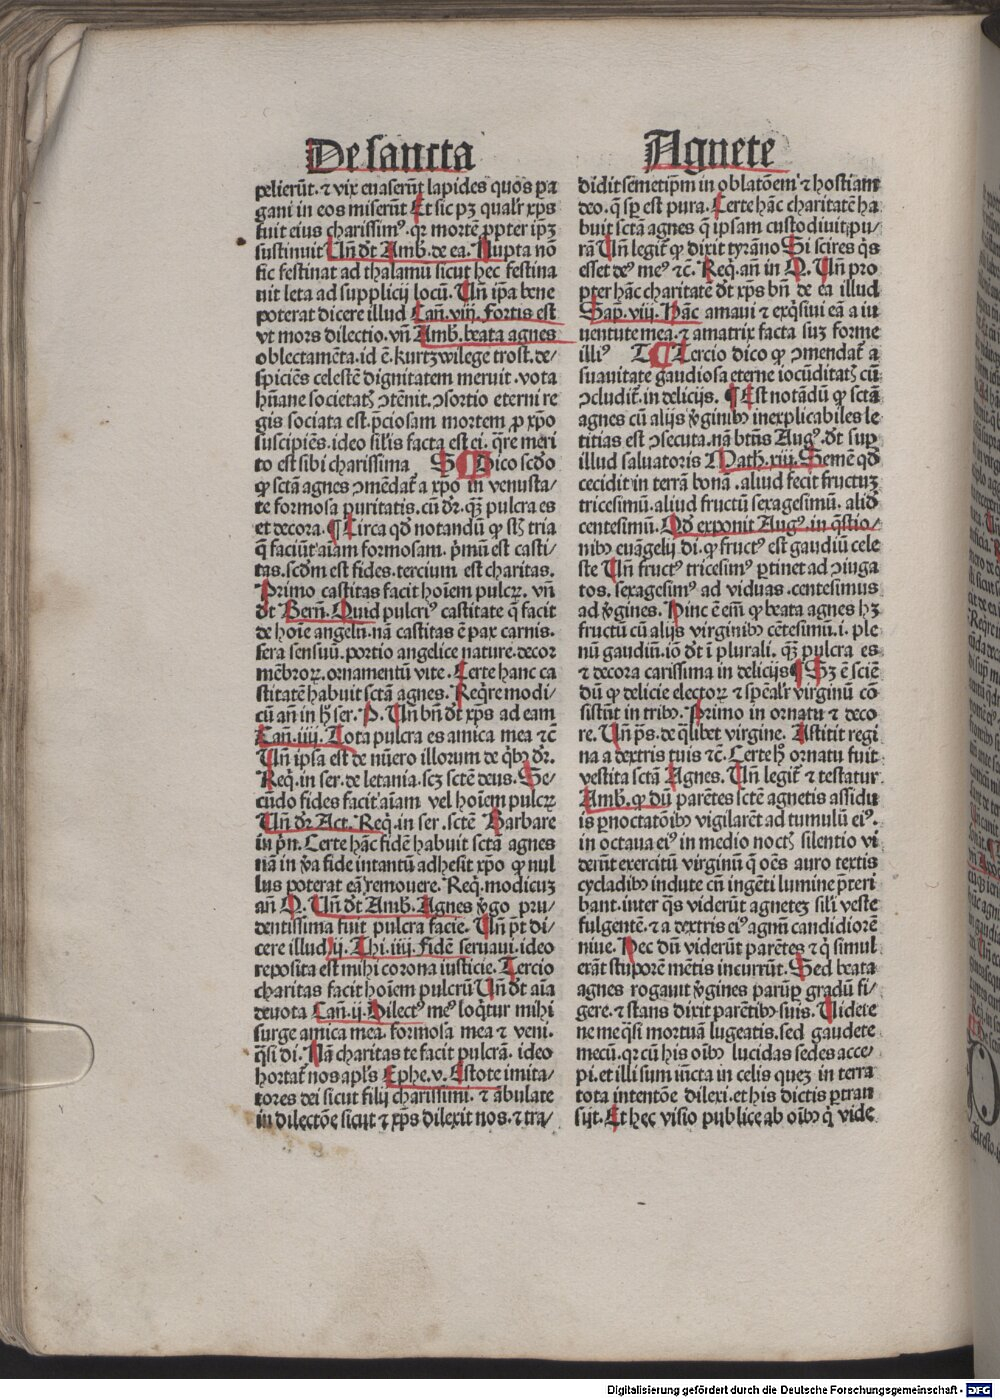 De sancta
pelierūt. ⁊ vix euaserūt lapides quos pa
gani in eos miserūt Et sic pꝫ qualr̄ xp̄s
fuit eius charissimꝰ. qꝛ mortē ꝓpter ip̄ꝫ
sustinuit Un̄ dt̄ Amb̄. de ea. Nupta nō
sic festinat ad thalamū sicut hec festina
uit leta ad supplicij locū. Un̄ ip̄a bene
poterat dicere illud Can̄. viij. fortis est
vt mors dilectio. vn̄ Amb. beata agnes
oblectamēta. id ē. kurtzwilege trost. de/
spiciēs celestē dignitatem meruit. vota
hn̄ane societatꝭ ↄtēnit. ↄsortio eterni re
gis sociata est. p̄ciosam mortem ꝓ xp̄o
suscipiēs. ideo sil̄is facta est ei. q̄re meri
to est sibi charissima S ¶ Dico scd̄o
ꝙ sctā agnes ↄmēdat̄ a xp̄o in venusta/
te formosa puritatis. cū dr̄. qꝫ pulcra es
et decora. ¶ Circa qd̄ notandū ꝙ st̄ tria
q̄ faciūt aīam formosam. p̄mū est casti/
tas. scd̄m est fides. tercium est charitas.
Primo castitas facit hoīem pulcꝝ. vn̄
dt̄ Bern̄. Quid pulcriꝰ castitate q̄ facit
de hoīe angelū. nā castitas ē pax carnis.
sera sensuū. portio angelice nature. decor
mēbroꝝ. ornamentū vite. Certe hanc ca
stitatē habuit sctā agnes. Req̄re modi/
cū an̄ in h̄ ser. P. Un̄ bn̄ dt̄ xp̄s ad eam
Can̄. iiij. Tota pulcra es amica mea ⁊c̄
Un̄ ip̄sa est de nūero illorum de q̄bꝰ dr̄.
Req̄. in ser. de letania. scꝫ sctē deus. Se/
cūdo fides facit aīam vel hoīem pulcꝝ
Un̄ dr̄ Act. Req̄. in ser. sctē Barbare
in pn̄. Certe hāc fidē habuit sctā agnes
nā in v̄a fide intantū adhesit xp̄o ꝙ nul
lus poterat eā remouere. Req̄. modicuꝫ
an̄ Q. Un̄ dt̄ Amb. Agnes v̄go pru/
dentissima fuit pulcra facie. Un̄ pt̄ di/
cere illud ij. Thi. iiij. Fidē seruaui. ideo
reposita est mihi corona iusticie. Tercio
charitas facit hoīem pulcrū Un̄ dt̄ aīa
deuota Can̄. ij. Dilectꝰ meꝰ loq̄tur mihi
surge amica mea. formosa mea ⁊ veni.
q̄si di. Nā charitas te facit pulcrā. ideo
hortat̄ nos apl̄s Ephe. v. Estote imita/
tores dei sicut filij charissimi. ⁊ ābulate
in dilectōe sicut ⁊ xp̄s dilexit nos. ⁊ tra/
Agnete
didit semetip̄m in oblatōem ⁊ hostiam
deo. q̄ sp̄ est pura. Certe hāc charitatē ha
buit sctā agnes q̄ ipsam custodiuit pu/
rā Un̄ legit̄ ꝙ dixit tyrāno Si scires q̄s
esset deꝰ meꝰ ⁊c̄. Req̄. an̄ in Q. Un̄ pro
pter hāc charitatē dt̄ xp̄s bn̄ de ea illud
Sap̄. viij. Hāc amaui ⁊ exq̄siui eā a iu
uentute mea. ⁊ amatrix facta suꝫ forme
illiꝰ T ¶ Tercio dico ꝙ ↄmendat̄ a
suauitate gaudiosa eterne iocūditatꝭ cū
ↄcludit̄. in delicijs. ¶ Est notādū ꝙ sctā
agnes cū alijs v̄ginibꝰ inexplicabiles le
titias est ↄsecuta. nā bt̄us Augꝰ. dt̄ suꝑ
illud saluatoris Math. xiij. Semē qd̄
cecidit in terrā bonā. aliud fecit fructuꝫ
tricesimū. aliud fructū sexagesimū. alid̄
centesimū. Qd̄ exponit Augꝰ. in q̄stio/
nibꝰ euāgelij di. ꝙ fructꝰ est gaudiū cele
ste Un̄ fructꝰ tricesimꝰ ꝑtinet ad ↄiuga
tos. sexagesimꝰ ad viduas. centesimus
ad v̄gines. Hinc ē em̄ ꝙ beata agnes hꝫ
fructū cū alijs virginibꝰ cētesimū. i. ple
nū gaudiū. iō dt̄ ī plurali. qꝫ pulcra es
⁊ decora carissima in delicijs ¶ Sꝫ ē sciē
dū ꝙ delicie electoꝝ ⁊ sp̄eal̄r virginū cō
sistūt in tribꝰ. Primo in ornatu ⁊ deco
re. Un̄ ps̄. de q̄libet virgine. Astitit regi
na a dextris tuis ⁊c̄. Certe h̄ ornatu fuit
vestita sctā Agnes. Un̄ legit̄ ⁊ testatur
Amb. ꝙ dū parētes sctē agnetis assidu
is ꝑnoctatōibꝰ vigilarēt ad tumulū eiꝰ.
in octaua eiꝰ in medio noctꝭ silentio vi
derūt exercitū virginū q̄ oēs auro textis
cycladibꝰ indute cū ingēti lumine p̄teri
bant. inter q̄s viderūt agneteꝫ sil̄i veste
fulgentē. ⁊ a dextris eiꝰ agnū candidiorē
niue. Hec dū viderūt parētes ⁊ q̇ simul
erāt stuporē mētis incurrūt. Sed beata
agnes rogauit v̄gines parūꝑ gradū fi/
gere. ⁊ stans dixit parētibꝰ suis. Uidete
ne me q̄si mortuā lugeatis. sed gaudete
mecū. qꝛ cū his oībꝰ lucidas sedes acce/
pi. et illi sum iūcta in celis queꝫ in terra
tota intentōe dilexi. et his dictis ꝑtran
sijt. Et hec visio publice ab oībꝰ q̇ vide
Digitalisierung gefördert durch die Deutsche Forschungsgemeinschaft - DFG